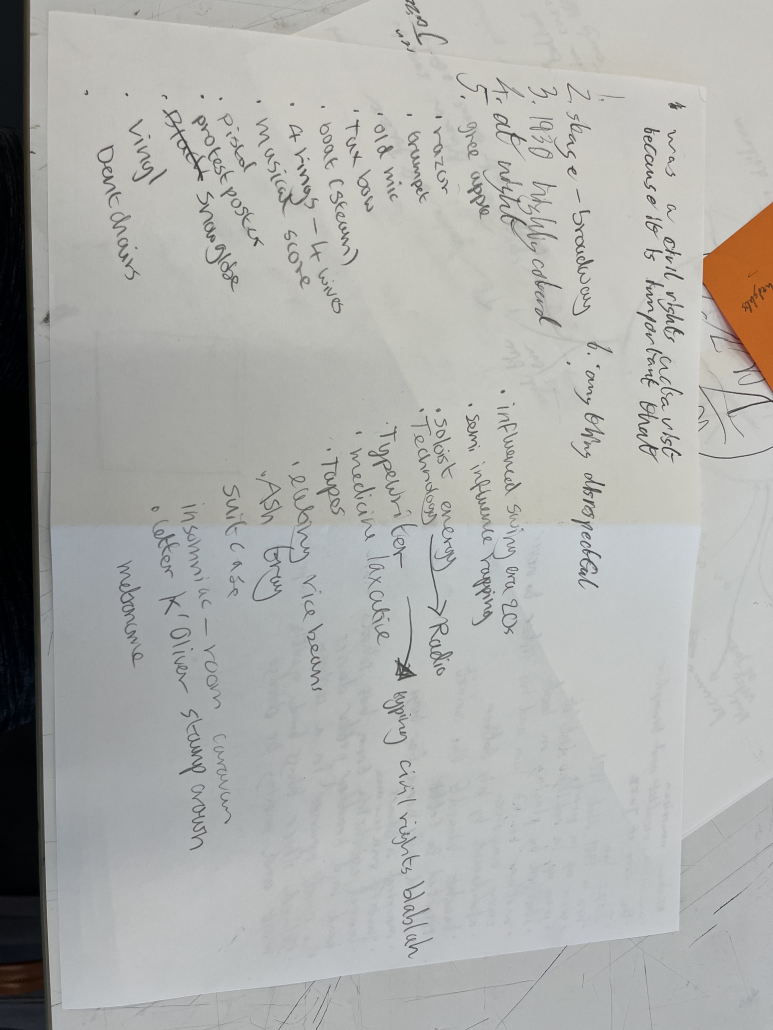 * was a civil rights indavist
because it is important that
1.
2. stage - broadway
3. 1930 highly colord
4. at night
5. gree apple
• razor
• trumpet
• old mic
• tux bow
• boat (steam)
• 4 rings - 4 wives
• musical score
• pistol
• protest poster
• snowglobe
• vinyl
Dent chairs
•
6. anything disrespectful
• influenced swing era 20s
• semi influence rapping
• soloist energy
• Technology → Radio
• Typewriter → typing civil rights blablah
• medicine laxative
• Tapes
• eating rice beans
• Ash tray
suitcase
insomniac - room caravan
• letter K'Oliver stamp crown
metronome